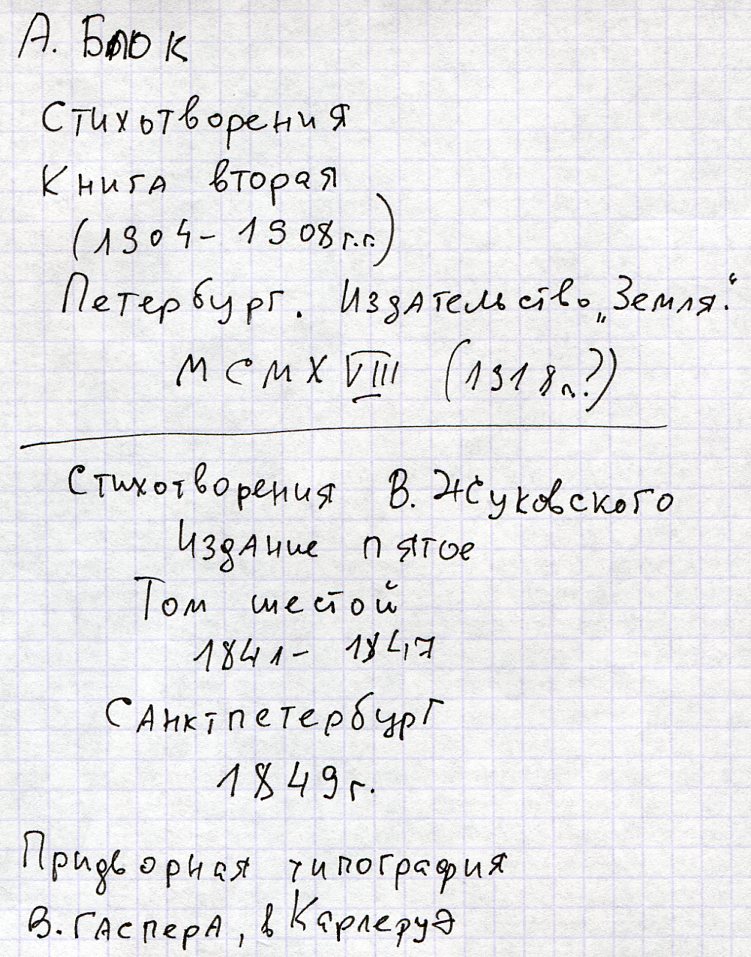 А. Блок
Стихотворения
Книга вторая
(1904 - 1908 г.г.)
Петербург. Издательство „Земля."
MCMXVIII (1918 г.?)
Стихотворения В. Жуковского
Издание пятое
Том шестой
1841 - 1847
Санктпетербург
1849 г.
Придворная типография
В. Гаспера, в Карлеруэ